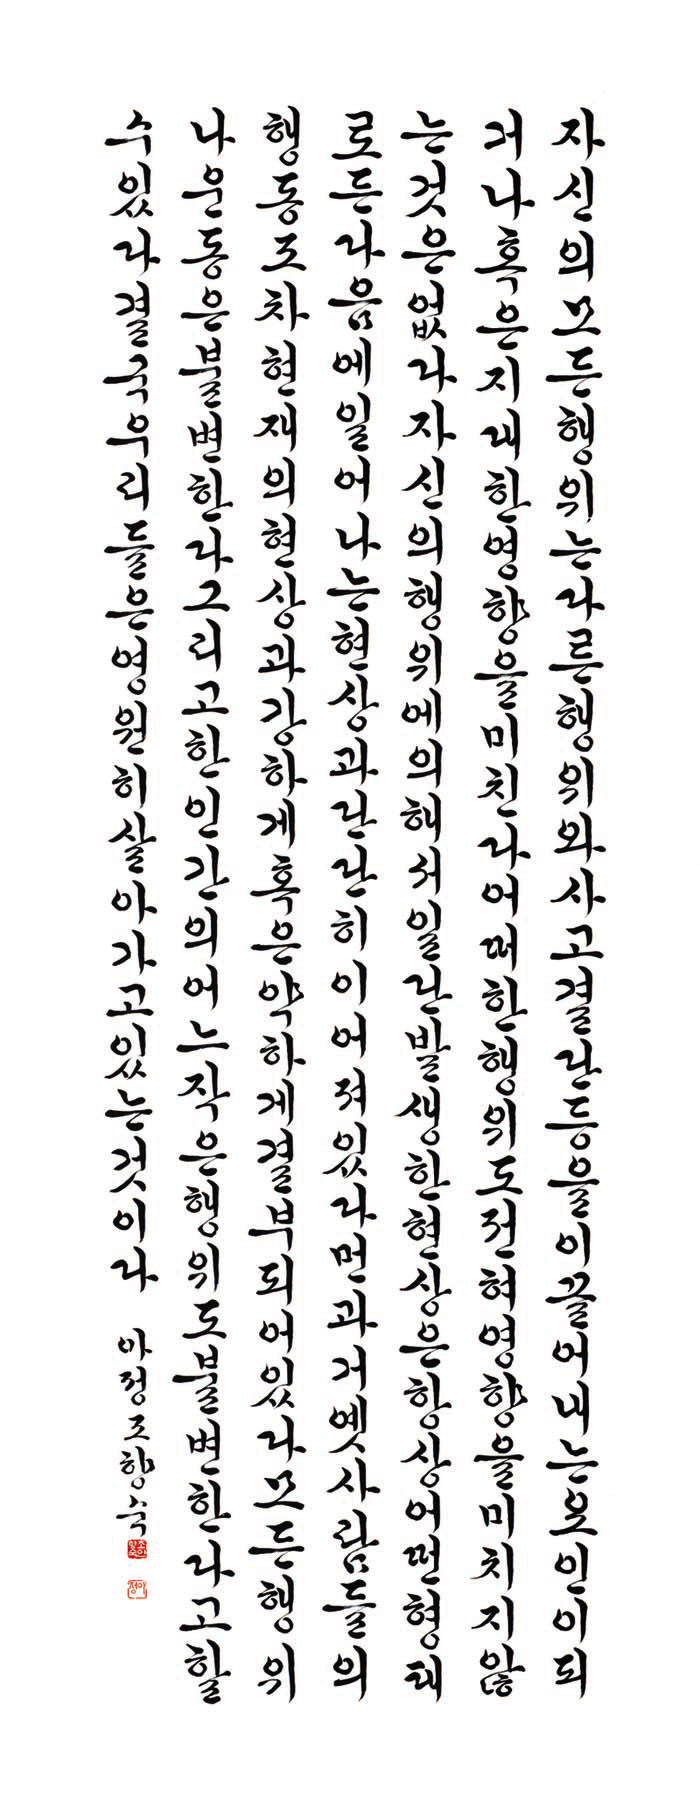 자신의모든행위는다른행위와사고결단등을이끌어내는요인이되
거나혹은지대한영향을미친다어떠한행위도전혀영향을미치지않
는것은없다자신의행위에의해서일단발생한현상은항상어떤형태
로든다음에일어나는현상과단단히이어져있다먼과거옛사람들의
행동조차현재의현상과강하게혹은약하게결부되어있다모든행위
나운동은불변한다그리고한인간의어느작은행위도불변한다고할
수있다결국우리들은영원히살아가고있는것이다
아정조향숙